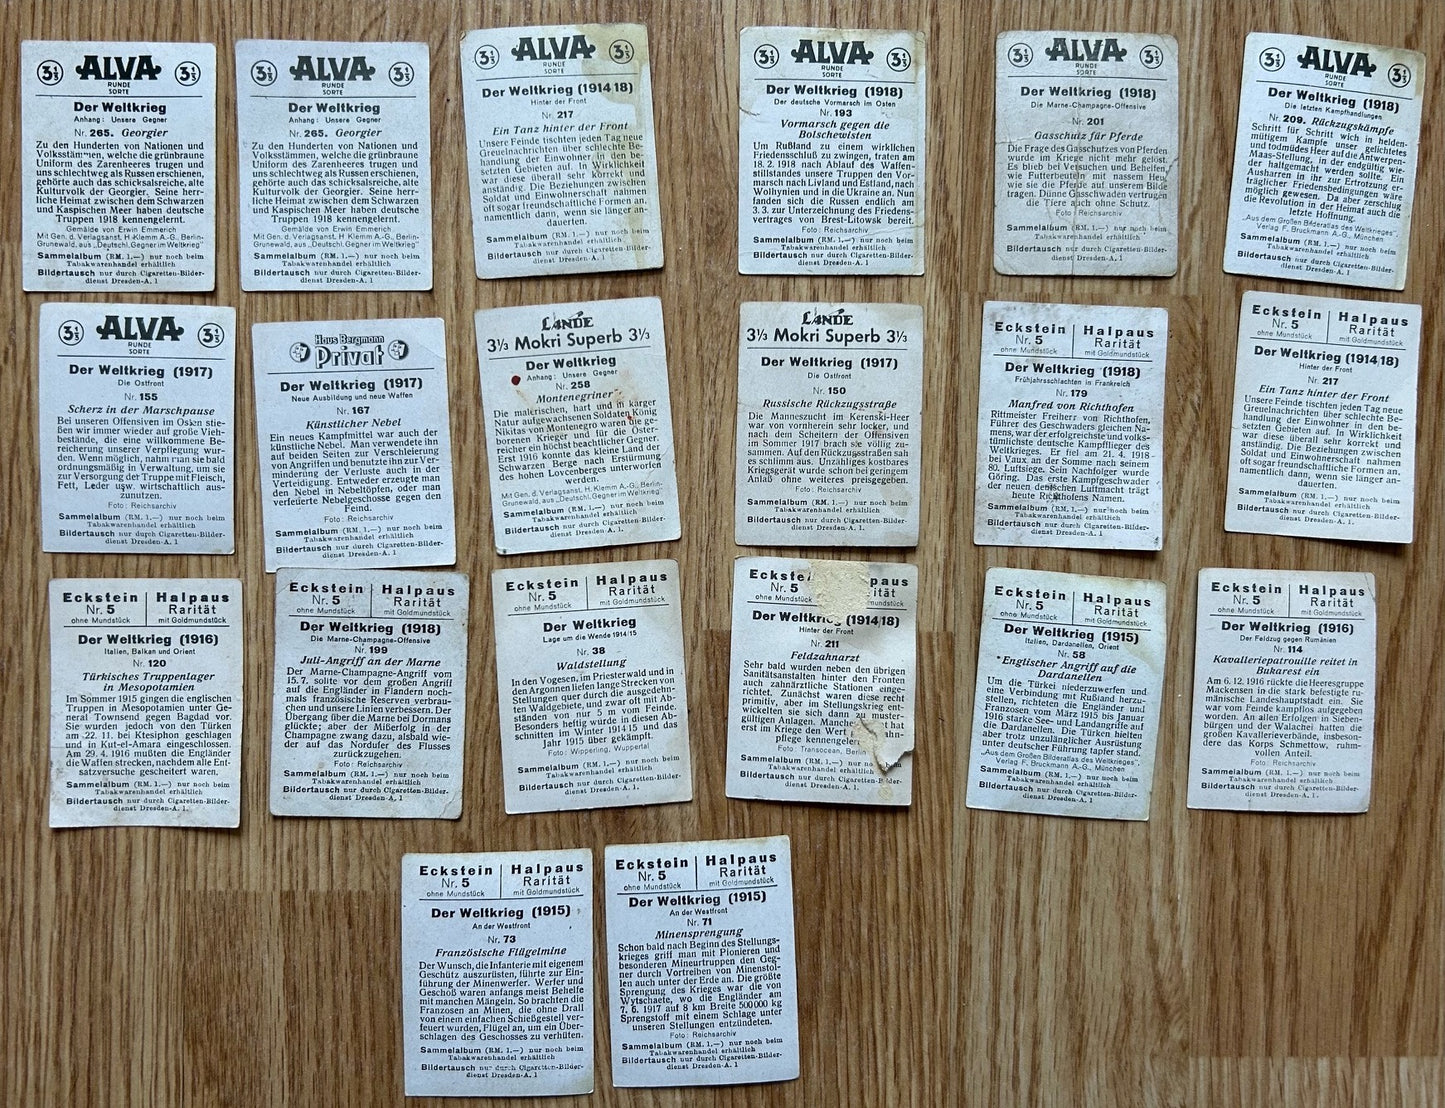 3⅓ ALVA 3⅓
RUNDE
SORTE
Der Weltkrieg
Anhang: Unsere Gegner
Nr. 265. Georgier
Zu den Hunderten von Nationen und
Volksstämmen, welche die grünbraune
Uniform des Zarenheeres trugen und
uns schlechtweg als Russen erschienen,
gehörte auch das schicksalsreiche, alte
Kulturvolk der Georgier. Seine herr-
liche Heimat zwischen dem Schwarzen
und Kaspischen Meer haben deutsche
Truppen 1918 kennengelernt.
Gemälde von Erwin Emmerich
Mit Gen. d. Verlagsanst. H. Klemm A.-G., Berlin-
Grunewald, aus „Deutschl. Gegner im Weltkrieg"
Sammelalbum (RM. 1.—) nur noch beim
Tabakwarenhandel erhältlich
Bildertausch nur durch Cigaretten-Bilder-
dienst Dresden-A. 1
3⅓ ALVA 3⅓
RUNDE
SORTE
Der Weltkrieg
Anhang: Unsere Gegner
Nr. 265. Georgier
Zu den Hunderten von Nationen und
Volksstämmen, welche die grünbraune
Uniform des Zarenheeres trugen und
uns schlechtweg als Russen erschienen,
gehörte auch das schicksalsreiche, alte
Kulturvolk der Georgier. Seine herr-
liche Heimat zwischen dem Schwarzen
und Kaspischen Meer haben deutsche
Truppen 1918 kennengelernt.
Gemälde von Erwin Emmerich
Mit Gen. d. Verlagsanst. H. Klemm A.-G., Berlin-
Grunewald, aus „Deutschl. Gegner im Weltkrieg"
Sammelalbum (RM. 1.—) nur noch beim
Tabakwarenhandel erhältlich
Bildertausch nur durch Cigaretten-Bilder-
dienst Dresden-A. 1
3⅓ ALVA 3⅓
RUNDE
SORTE
Der Weltkrieg (1914/18)
Hinter der Front
Nr. 217
Ein Tanz hinter der Front
Unsere Feinde tischten jeden Tag neue
Greuelnachrichten über schlechte Be-
handlung der Einwohner in den be-
setzten Gebieten auf. In Wirklichkeit
war diese überall sehr korrekt und
anständig. Die Beziehungen zwischen
Soldat und Einwohnerschaft nahmen
oft sogar freundschaftliche Formen an,
namentlich dann, wenn sie länger an-
dauerten.
Sammelalbum (RM. 1.—) nur noch beim
Tabakwarenhandel erhältlich
Bildertausch nur durch Cigaretten-Bilder-
dienst Dresden-A. 1
3⅓ ALVA 3⅓
RUNDE
SORTE
Der Weltkrieg (1918)
Der deutsche Vormarsch im Osten
Nr. 193
Vormarsch gegen die
Bolschewisten
Um Rußland zu einem wirklichen
Friedensschluß zu zwingen, traten am
18. 2. 1918 nach Ablauf des Waffen-
stillstandes unsere Truppen den Vor-
marsch nach Livland und Estland, nach
Wolhynien und in die Ukraine an. Nun
fanden sich die Russen endlich am
3. 3. zur Unterzeichnung des Friedens-
vertrages von Brest-Litowsk bereit.
Foto: Reichsarchiv
Sammelalbum (RM. 1.—) nur noch beim
Tabakwarenhandel erhältlich
Bildertausch nur durch Cigaretten-Bilder-
dienst Dresden-A. 1
3⅓ ALVA 3⅓
RUNDE
SORTE
Der Weltkrieg (1918)
Die Marne-Champagne-Offensive
Nr. 201
Gasschutz für Pferde
Die Frage des Gasschutzes von Pferden
wurde im Kriege nicht mehr gelöst.
Es blieb bei Versuchen und Behelfen,
wie Futterbeuteln mit nassem Heu,
wie sie die Pferde auf unserem Bilde
tragen. Dünne Gasschwaden vertrugen
die Tiere auch ohne Schutz.
Foto: Reichsarchiv
Sammelalbum (RM. 1.—) nur noch beim
Tabakwarenhandel erhältlich
Bildertausch nur durch Cigaretten-Bilder-
dienst Dresden-A. 1
3⅓ ALVA 3⅓
RUNDE
SORTE
Der Weltkrieg (1918)
Die letzten Kampfhandlungen
Nr. 209. Rückzugskämpfe
Schritt für Schritt wich in helden-
mütigem Kampfe unser gelichtetes
und todmüdes Heer auf die Antwerpen-
Maas-Stellung, in der endgültig wie-
der haltgemacht werden sollte. Ein
Ausharren in ihr zur Ertrotzung er-
träglicher Friedensbedingungen wäre
möglich gewesen. Da aber zerschlug
die Revolution in der Heimat auch die
letzte Hoffnung.
„Aus dem Großen Bilderatlas des Weltkrieges",
Verlag F. Bruckmann A.-G., München
Sammelalbum (RM. 1.—) nur noch beim
Tabakwarenhandel erhältlich
Bildertausch nur durch Cigaretten-Bilder-
dienst Dresden-A. 1
3⅓ ALVA 3⅓
RUNDE
SORTE
Der Weltkrieg (1917)
Die Ostfront
Nr. 155
Scherz in der Marschpause
Bei unseren Offensiven im Osten stie-
ßen wir immer wieder auf große Vieh-
bestände, die eine willkommene Be-
reicherung unserer Verpflegung wur-
den. Wenn möglich, nahm man sie bald
ordnungsmäßig in Verwaltung, um sie
zur Versorgung der Truppe mit Fleisch,
Fett, Leder usw. wirtschaftlich aus-
zunutzen.
Foto: Reichsarchiv
Sammelalbum (RM. 1.—) nur noch beim
Tabakwarenhandel erhältlich
Bildertausch nur durch Cigaretten-Bilder-
dienst Dresden-A. 1
Haus Bergmann
Privat
Der Weltkrieg (1917)
Neue Ausbildung und neue Waffen
Nr. 167
Künstlicher Nebel
Ein neues Kampfmittel war auch der
künstliche Nebel. Man verwendete ihn
auf beiden Seiten zur Verschleierung
von Angriffen und benutzte ihn zur Ver-
minderung der Verluste auch in der
Verteidigung. Entweder erzeugte man
den Nebel in Nebeltöpfen, oder man
verfeuerte Nebelgeschosse gegen den
Feind.
Foto: Reichsarchiv
Sammelalbum (RM. 1.—) nur noch beim
Tabakwarenhandel erhältlich
Bildertausch nur durch Cigaretten-Bilder-
dienst Dresden-A. 1
LANDE
3⅓ Mokri Superb 3⅓
Der Weltkrieg
Anhang: Unsere Gegner
Nr. 258
Montenegriner
Die malerischen, hart und in karger
Natur aufgewachsenen Soldaten König
Nikitas von Montenegro waren die ge-
borenen Krieger und für die Öster-
reicher ein höchst beachtlicher Gegner.
Erst 1916 konnte das kleine Land der
Schwarzen Berge nach Erstürmung
des hohen Lovcenberges unterworfen
werden.
Mit Gen. d. Verlagsanst. H. Klemm A.-G., Berlin-
Grunewald, aus „Deutschl. Gegner im Weltkrieg"
Sammelalbum (RM. 1.—) nur noch beim
Tabakwarenhandel erhältlich
Bildertausch nur durch Cigaretten-Bilder-
dienst Dresden-A. 1
LANDE
3⅓ Mokri Superb 3⅓
Der Weltkrieg (1917)
Die Ostfront
Nr. 150
Russische Rückzugsstraße
Die Manneszucht im Kerenski-Heer
war von vornherein sehr locker, und
nach dem Scheitern der Offensiven
im Sommer 1917 brach sie völlig zu-
sammen. Auf den Rückzugsstraßen sah
es schlimm aus. Unzähliges kostbares
Kriegsgerät wurde schon bei geringem
Anlaß ohne weiteres preisgegeben.
Foto: Reichsarchiv
Sammelalbum (RM. 1.—) nur noch beim
Tabakwarenhandel erhältlich
Bildertausch nur durch Cigaretten-Bilder-
dienst Dresden-A. 1
Eckstein Halpaus
Nr. 5 Rarität
ohne Mundstück mit Goldmundstück
Der Weltkrieg (1918)
Frühjahrsschlachten in Frankreich
Nr. 179
Manfred von Richthofen
Rittmeister Freiherr von Richthofen,
Führer des Geschwaders gleichen Na-
mens, war der erfolgreichste und volks-
tümlichste deutsche Kampfflieger des
Weltkrieges. Er fiel am 21. 4. 1918
bei Vaux an der Somme nach seinem
80. Luftsiege. Sein Nachfolger wurde
Göring. Das erste Kampfgeschwader
der neuen deutschen Luftmacht trägt
heute Richthofens Namen.
Foto: Reichsarchiv
Sammelalbum (RM. 1.—) nur noch beim
Tabakwarenhandel erhältlich
Bildertausch nur durch Cigaretten-Bilder-
dienst Dresden-A. 1
Eckstein Halpaus
Nr. 5 Rarität
ohne Mundstück mit Goldmundstück
Der Weltkrieg (1914/18)
Hinter der Front
Nr. 217
Ein Tanz hinter der Front
Unsere Feinde tischten jeden Tag neue
Greuelnachrichten über schlechte Be-
handlung der Einwohner in den be-
setzten Gebieten auf. In Wirklichkeit
war diese überall sehr korrekt und
anständig. Die Beziehungen zwischen
Soldat und Einwohnerschaft nahmen
oft sogar freundschaftliche Formen an,
namentlich dann, wenn sie länger an-
dauerten.
Sammelalbum (RM. 1.—) nur noch beim
Tabakwarenhandel erhältlich
Bildertausch nur durch Cigaretten-Bilder-
dienst Dresden-A. 1
Eckstein Halpaus
Nr. 5 Rarität
ohne Mundstück mit Goldmundstück
Der Weltkrieg (1916)
Italien, Balkan und Orient
Nr. 120
Türkisches Truppenlager
in Mesopotamien
Im Sommer 1915 gingen die englischen
Truppen in Mesopotamien unter Ge-
neral Townsend gegen Bagdad vor.
Sie wurden jedoch von den Türken
am 22. 11. bei Ktesiphon geschlagen
und in Kut-el-Amara eingeschlossen.
Am 29. 4. 1916 mußten die Engländer
die Waffen strecken, nachdem alle Ent-
satzversuche gescheitert waren.
Sammelalbum (RM. 1.—) nur noch beim
Tabakwarenhandel erhältlich
Bildertausch nur durch Cigaretten-Bilder-
dienst Dresden-A. 1.
Eckstein Halpaus
Nr. 5 Rarität
ohne Mundstück mit Goldmundstück
Der Weltkrieg (1918)
Die Marne-Champagne-Offensive
Nr. 199
Juli-Angriff an der Marne
Der Marne-Champagne-Angriff vom
15. 7. sollte vor dem großen Angriff
auf die Engländer in Flandern noch-
mals französische Reserven verbrau-
chen und unsere Linien verbessern. Der
Übergang über die Marne bei Dormans
glückte; aber der Mißerfolg in der
Champagne zwang dazu, alsbald wie-
der auf das Nordufer des Flusses
zurückzugehen.
Foto: Reichsarchiv
Sammelalbum (RM. 1.—) nur noch beim
Tabakwarenhandel erhältlich
Bildertausch nur durch Cigaretten-Bilder-
dienst Dresden-A. 1
Eckstein Halpaus
Nr. 5 Rarität
ohne Mundstück mit Goldmundstück
Der Weltkrieg
Lage um die Wende 1914/15
Nr. 38
Waldstellung
In den Vogesen, im Priesterwald und in
den Argonnen liefen lange Strecken von
Stellungen quer durch die ausgedehn-
ten Waldgebiete, und zwar oft mit Ab-
ständen von nur 5 m vom Feinde.
Besonders heftig wurde in diesen Ab-
schnitten im Winter 1914/15 und das
Jahr 1915 über gekämpft.
Foto: Wipperling, Wuppertal
Sammelalbum (RM. 1.—) nur noch beim
Tabakwarenhandel erhältlich
Bildertausch nur durch Cigaretten-Bilder-
dienst Dresden-A. 1.
Eckste paus
Nr. 5 ität
ohne Mundstück mit Goldmundstück
Der Weltkrieg (1914/18)
Hinter der Front
Nr. 211
Feldzahnarzt
Sehr bald wurden neben den übrigen
Sanitätsanstalten hinter den Fronten
auch zahnärztliche Stationen einge-
richtet. Zunächst waren diese recht
primitiv, aber im Stellungskrieg ent-
wickelten sie sich dann zu muster-
gültigen Anlagen. Manche hat
erst im Kriege den Wert
pflege kennengele
Foto: Transocean, Berlin
Sammelalbum (RM. 1.—) n
Tabakwarenhandel erhältlich
Bildertausch nur durch Cigaretten-Bilder-
dienst Dresden-A. 1.
Eckstein Halpaus
Nr. 5 Rarität
ohne Mundstück mit Goldmundstück
Der Weltkrieg (1915)
Italien, Dardanellen, Orient
Nr. 58
Englischer Angriff auf die
Dardanellen
Um die Türkei niederzuwerfen und
eine Verbindung mit Rußland herzu-
stellen, richteten die Engländer und
Franzosen vom März 1915 bis Januar
1916 starke See- und Landangriffe auf
die Dardanellen. Die Türken hielten
aber trotz unzulänglicher Ausrüstung
unter deutscher Führung tapfer stand.
„Aus dem Großen Bilderatlas des Weltkrieges",
Verlag F. Bruckmann A.-G., München
Sammelalbum (RM. 1.—) nur noch beim
Tabakwarenhandel erhältlich
Bildertausch nur durch Cigaretten-Bilder-
dienst Dresden-A. 1.
Eckstein Halpaus
Nr. 5 Rarität
ohne Mundstück mit Goldmundstück
Der Weltkrieg (1916)
Der Feldzug gegen Rumänien
Nr. 114
Kavalleriepatrouille reitet in
Bukarest ein
Am 6. 12. 1916 rückte die Heeresgruppe
Mackensen in die stark befestigte ru-
mänische Landeshauptstadt ein. Sie
war vom Feinde kampflos aufgegeben
worden. An allen Erfolgen in Sieben-
bürgen und der Walachei hatten die
großen Kavallerieverbände, insbeson-
dere das Korps Schmettow, ruhm-
vollen Anteil.
Foto: Reichsarchiv
Sammelalbum (RM. 1.—) nur noch beim
Tabakwarenhandel erhältlich
Bildertausch nur durch Cigaretten-Bilder-
dienst Dresden-A. 1.
Eckstein Halpaus
Nr. 5 Rarität
ohne Mundstück mit Goldmundstück
Der Weltkrieg (1915)
An der Westfront
Nr. 73
Französische Flügelmine
Der Wunsch, die Infanterie mit eigenem
Geschütz auszurüsten, führte zur Ein-
führung der Minenwerfer. Werfer und
Geschoß waren anfangs meist Behelfe
mit manchen Mängeln. So brachten die
Franzosen an Minen, die ohne Drall
von einem einfachen Schießgestell ver-
feuert wurden, Flügel an, um ein Über-
schlagen des Geschosses zu verhüten.
Sammelalbum (RM. 1.—) nur noch beim
Tabakwarenhandel erhältlich
Bildertausch nur durch Cigaretten-Bilder-
dienst Dresden-A. 1
Eckstein Halpaus
Nr. 5 Rarität
ohne Mundstück mit Goldmundstück
Der Weltkrieg (1915)
An der Westfront
Nr. 71
Minensprengung
Schon bald nach Beginn des Stellungs-
krieges griff man mit Pionieren und
besonderen Mineurtruppen den Geg-
ner durch Vortreiben von Minenstol-
len auch unter der Erde an. Die größte
Sprengung des Krieges war die von
Wytschaete, wo die Engländer am
7. 6. 1917 auf 8 km Breite 500000 kg
Sprengstoff mit einem Schlage unter
unseren Stellungen entzündeten.
Foto: Reichsarchiv
Sammelalbum (RM. 1.—) nur noch beim
Tabakwarenhandel erhältlich
Bildertausch nur durch Cigaretten-Bilder-
dienst Dresden-A. 1